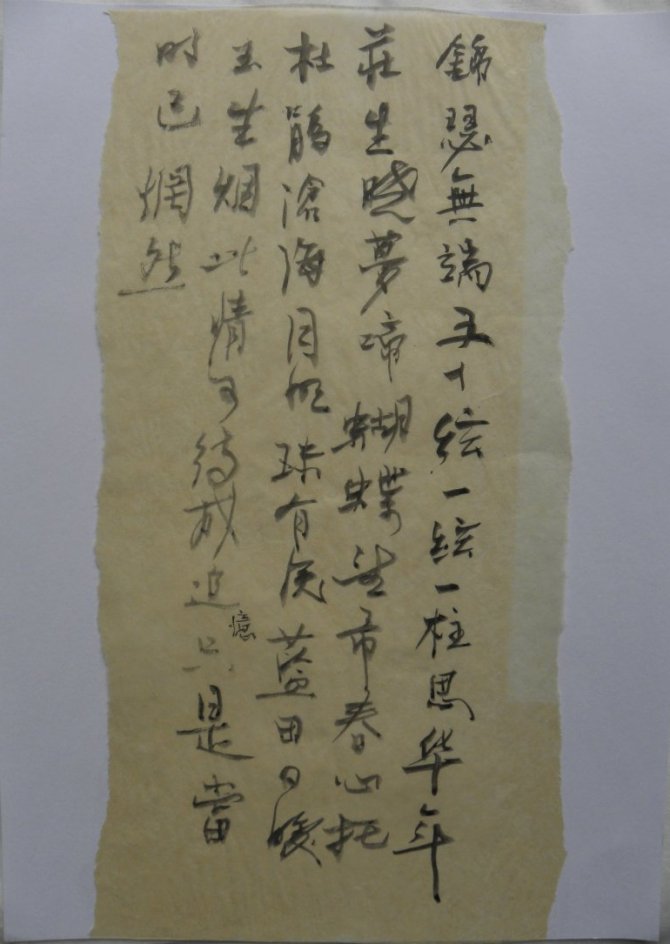 錦瑟無端五十絃一絃一柱思华年
莊生曉夢啼蝴蝶望帝春心托
杜鵑滄海月明珠有淚藍田日暖
玉生烟此情可待成追憶只是當
时已惘然